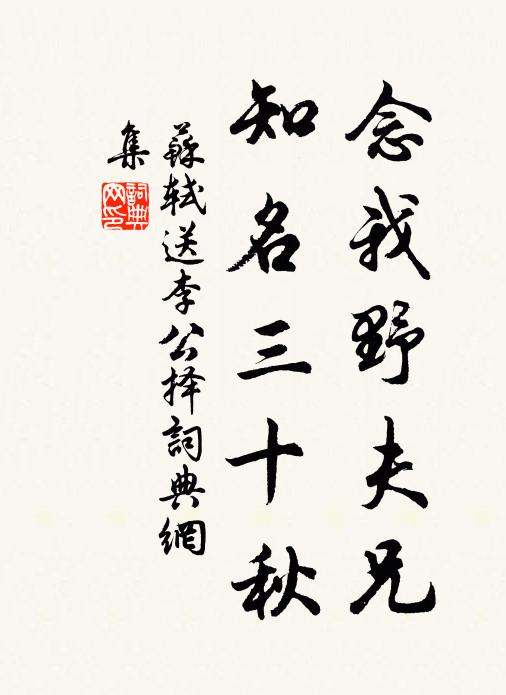 念我野夫兄
知名三十秋
蘇軾送李公择詞典網
集
詞典
网印